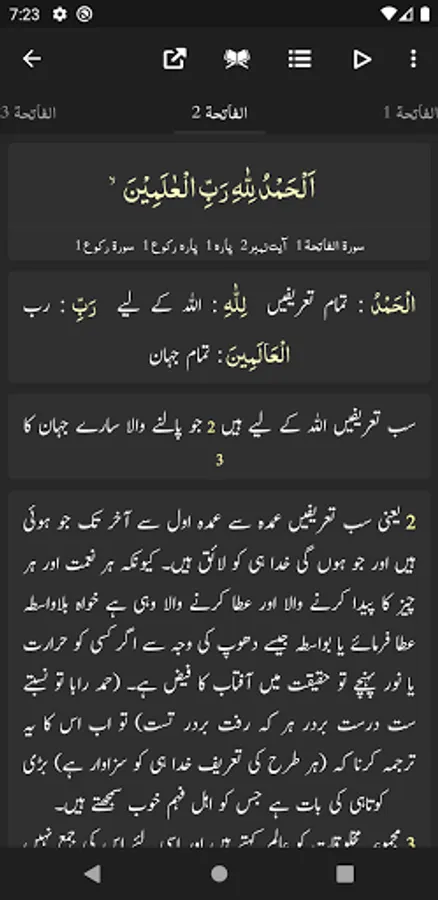 7:23
الفاتحة 1
الفاتحة 2
الفاتحة 3
اَلْحَمْدُ لِلّٰهِ رَبِّ الْعٰلَمِیْنَ ۙ
سورة الفاتحة 1 آیت نمبر 2 پارہ 1 پارہ رکوع 1 سورة رکوع 1
الْحَمْدُ : تمام تعریفیں لِلّٰهِ : اللہ کے لیے رَبِّ : رب
الْعَالَمِينَ : تمام جہان
سب تعریفیں اللہ کے لیے ہیں 2 جو پالنے والا سارے جہان کا
3
2 یعنی سب تعریفیں عمدہ سے عمدہ اول سے آخر تک جو ہوئی
ہیں اور جو ہوں گی خدا ہی کو لائق ہیں۔ کیونکہ ہر نعمت اور ہر
چیز کا پیدا کرنے والا اور عطا کرنے والا وہی ہے خواہ بلاواسطہ
عطا فرمائے یا بواسطہ جیسے دھوپ کی وجہ سے اگر کسی کو حرارت
یا نور پہنچے تو حقیقت میں آفتاب کا فیض ہے۔ (حمد رابا تو نسبتے
ست درست بردر ہر کہ رفت بردر تست) تو اب اس کا یہ
ترجمہ کرنا کہ (ہر طرح کی تعریف خدا ہی کو سزاوار ہے) بڑی
کوتاہی کی بات ہے جس کو اہل فہم خوب سمجھتے ہیں۔
3 مجموعہ مخلوقات کو عالم کہتے ہیں اور اسی لئے اس کی جمع نہیں